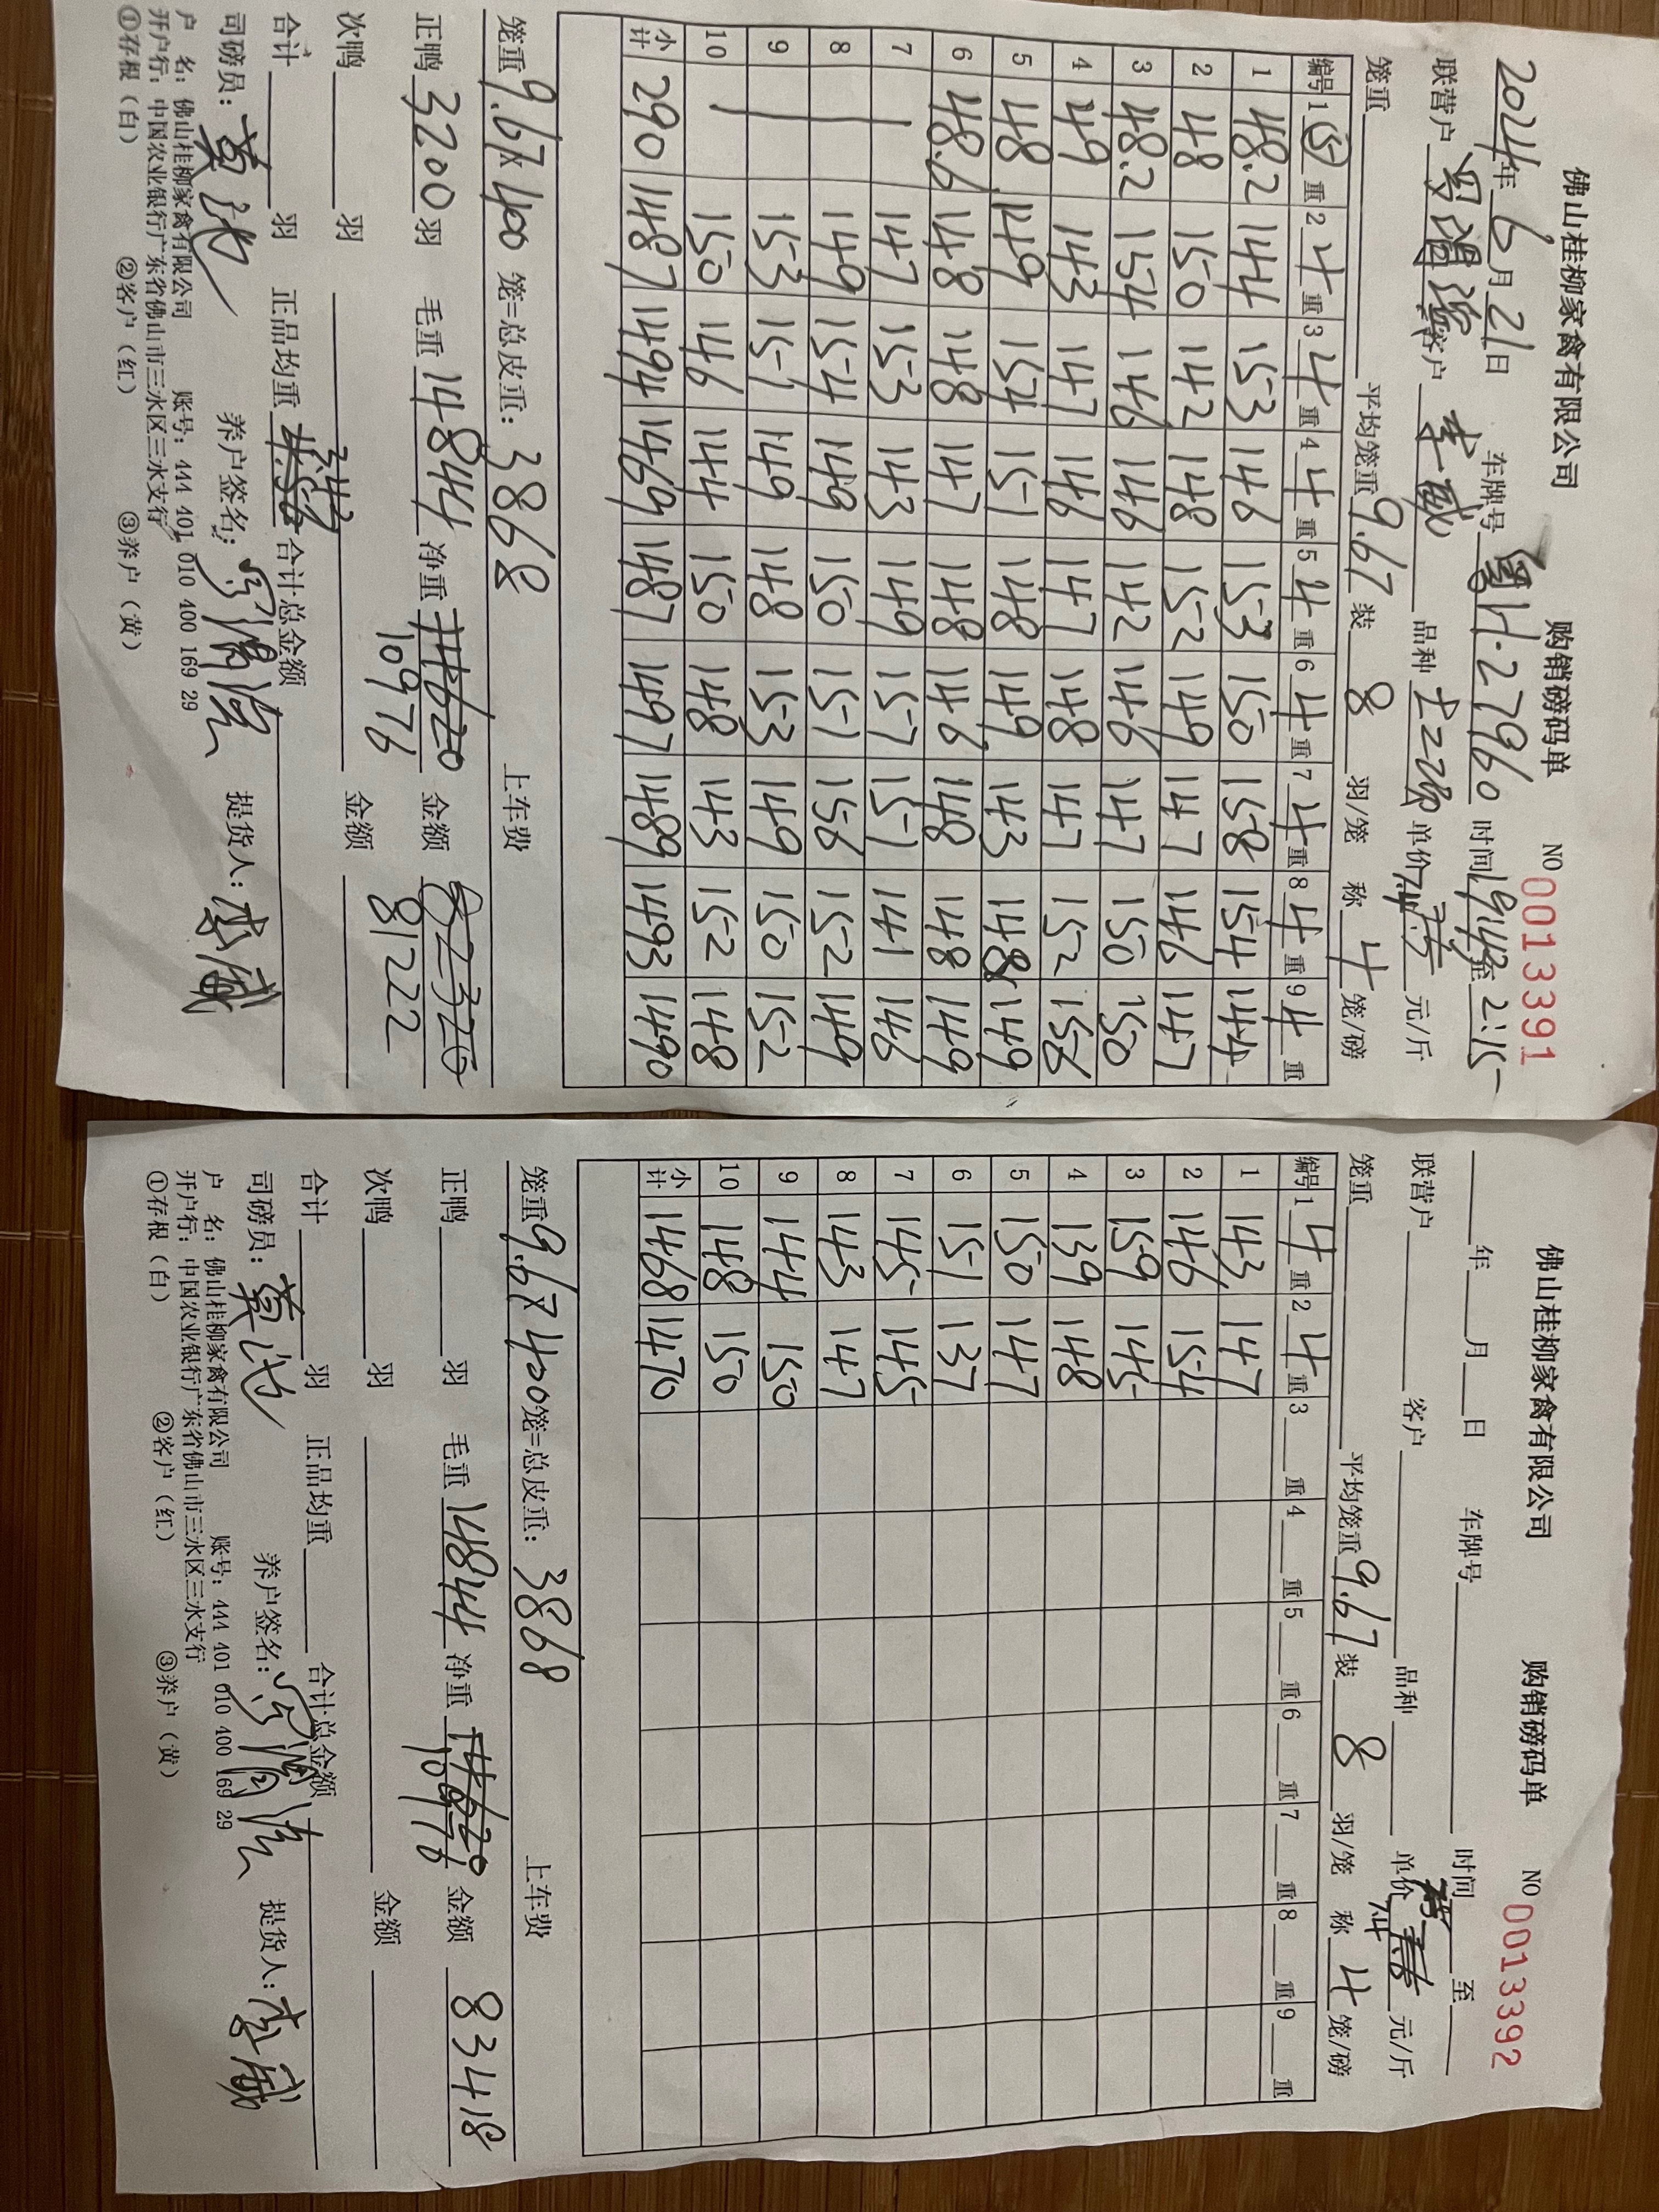 佛山桂柳家禽有限公司 购销磅码单 NO 0013391
2024年6月21日 车牌号 粤H·27960 时间 19:42至2:15
联营户 客户 李威 品种 单价 7.4 元/斤
笼重 平均笼重 9.67 装 8 羽/笼 称 4 笼/磅
编号 1 (5) 重 2 4 重 3 4 重 4 4 重 5 4 重 6 4 重 7 4 重 8 4 重 9 4 重
1 48.2 144 153 146 153 150 158 154 144
2 48 150 142 148 152 149 147 146 147
3 48.2 154 146 146 142 146 147 150 150
4 49 143 147 146 147 148 147 152 156
5 48 149 154 151 148 149 143 148 149
6 48.6 148 148 147 148 146 148 148 149
7 147 153 143 149 157 151 141 146
8 149 154 149 150 151 156 152 149
9 153 151 149 148 153 149 150 152
10 150 146 144 150 148 143 152 148
小计 290 1487 1494 1469 1487 1497 1489 1493 1490
笼重 9.67× 400 笼=总皮重: 3868 上车费
正鸭 3200 羽 毛重 14844 净重 11620 金额 82326
10976 81222
次鸭 羽 金额
合计 羽 正品均重 3.43 合计总金额
司磅员: 养户签名: 提货人: 李威
户 名: 佛山桂柳家禽有限公司 账号: 444 401 010 400 169 29
开户行: 中国农业银行广东省佛山市三水区三水支行
①存根(白) ②客户(红) ③养户(黄)
佛山桂柳家禽有限公司 购销磅码单 NO 0013392
年 月 日 车牌号 时间 至
联营户 客户 品种 单价 7.4 元/斤
笼重 平均笼重 9.67 装 8 羽/笼 称 4 笼/磅
编号 1 4 重 2 4 重 3 重 4 重 5 重 6 重 7 重 8 重 9 重
1 143 147
2 146 154
3 159 145
4 139 148
5 150 147
6 151 137
7 145 145
8 143 147
9 144 150
10 148 150
小计 1468 1470
笼重 9.67 400 笼=总皮重: 3868 上车费
正鸭 羽 毛重 14844 净重 11620 金额 83418
10976
次鸭 羽 金额
合计 羽 正品均重 合计总金额
司磅员: 养户签名: 提货人: 李威
户 名: 佛山桂柳家禽有限公司 账号: 444 401 010 400 169 29
开户行: 中国农业银行广东省佛山市三水区三水支行
①存根(白) ②客户(红) ③养户(黄)